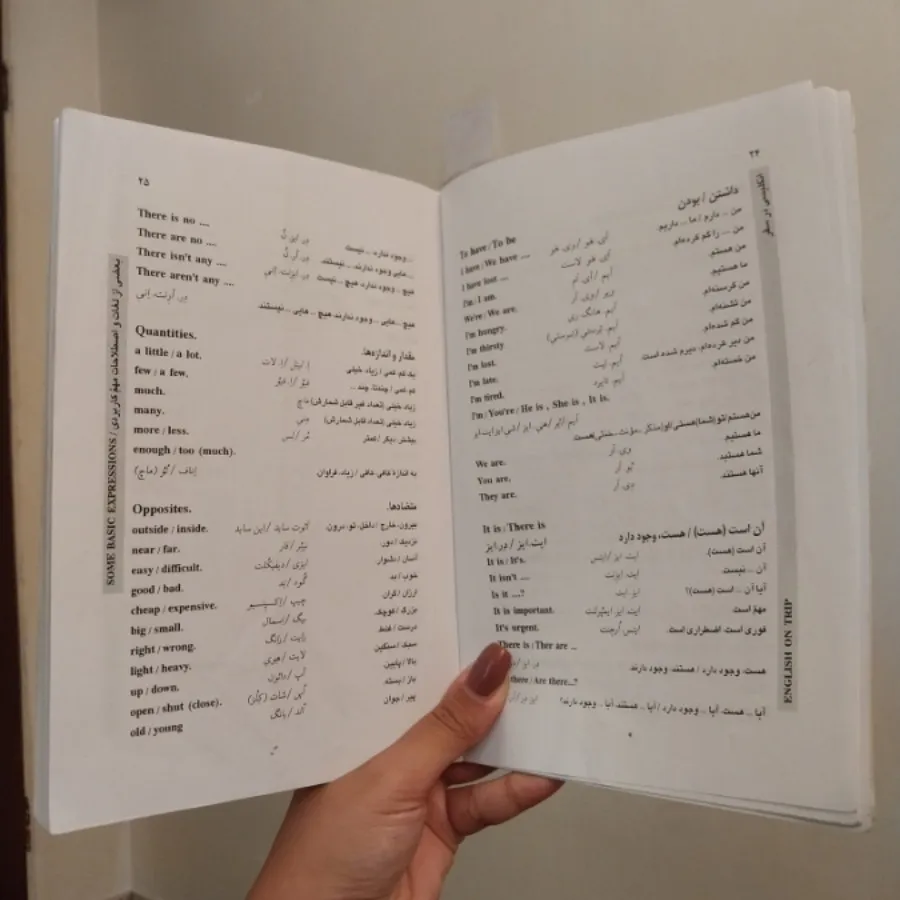 ۲۴
انگلیسی در سفر
داشتن / بودن
To have / To be
I have / We have .... آی هَو / وی هَو من ... دارم / ما ... داریم.
I have lost .... آی هَو لاست من .... را گم کرده‌ام.
I'm / I am. آیم / آی اَم من هستم.
We're / We are. ما هستیم.
I'm hungry. آیم هانگ ری من گرسنه‌ام.
I'm thirsty من تشنه‌ام.
I'm lost. آیم لاست من گم شده‌ام.
I'm late. آیم لِیت من دیر کرده‌ام، دیرم شده است.
I'm tired. آیم تایرد من خسته‌ام.
I'm / You're / He is , She is , It is.
We are. وی آر ما هستیم.
You are. یُو آر شما هستید.
They are. دِی آر آنها هستند.
It is / There is
آن است (هست) / هست، وجود دارد
ایت ایز / دِر ایز
It is / It's. ایت ایز / ایتس آن است (هست).
It isn't .... ایت ایزنت آن ... نیست.
Is it ...? ایز ایت آیا آن ... است (هست)؟
It is important. ایت ایز ایمپُرتنت مهم است
It's urgent. ایتس اُرجنت فوری است. اضطراری است.
There is / Ther are ...
هست، وجود دارد / هستند، وجود دارند.
there / Are there...?
آیا ... هست، آیا ... وجود دارد / آیا ... هستند، آیا ... وجود دارند؟
ENGLISH ON TRIP
۲۵
There is no .... ...وجود ندارد، ... نیست
There are no .... ...هایی وجود ندارند، ... نیستند.
There isn't any .... هیچ ... وجود ندارد، هیچ ... نیست
There aren't any ....
هیچ...هایی ...وجود ندارند، هیچ ... هایی ... نیستند
Quantities. مقدار و اندازه‌ها.
a little / a lot. اِ لیتل / اِ. لات یک کم، کمی / زیاد، خیلی
few / a few. فیُو / اِ. فیُو کم، کمی / چندتا، چند ...
much. ماچ زیاد، خیلی (تعداد غیر قابل شمارش)
many. مِنی زیاد، خیلی (تعداد قابل شمارش)
more / less. مُر / لِس بیشتر، دیگر / کمتر
enough / too (much).
اِناف / تُو (ماچ) به اندازهٔ کافی، کافی / زیاد، فراوان
Opposites. متضادها.
outside / inside. اوت ساید / این ساید بیرون، خارج / داخل، تو، درون.
near / far. نیِر / فار نزدیک / دور.
easy / difficult. ایزی / دیفیکُلت آسان / دشوار
good / bad. گود / بَد خوب / بد
cheap / expensive. چیپ / اِکسپنسیو ارزان / گران.
big / small. بیگ / اسمال بزرگ / کوچک.
right / wrong. رایت / رانگ درست / غلط
light / heavy. لایت / هِوی سبک / سنگین
up / down. آپ / داون بالا / پایین.
open / shut (close). اُپن / شات (کلُز) باز / بسته.
old / young اُلد / یانگ پیر / جوان
SOME BASIC EXPRESSIONS / بعضی از لغات و اصطلاحات مهم کاربردی